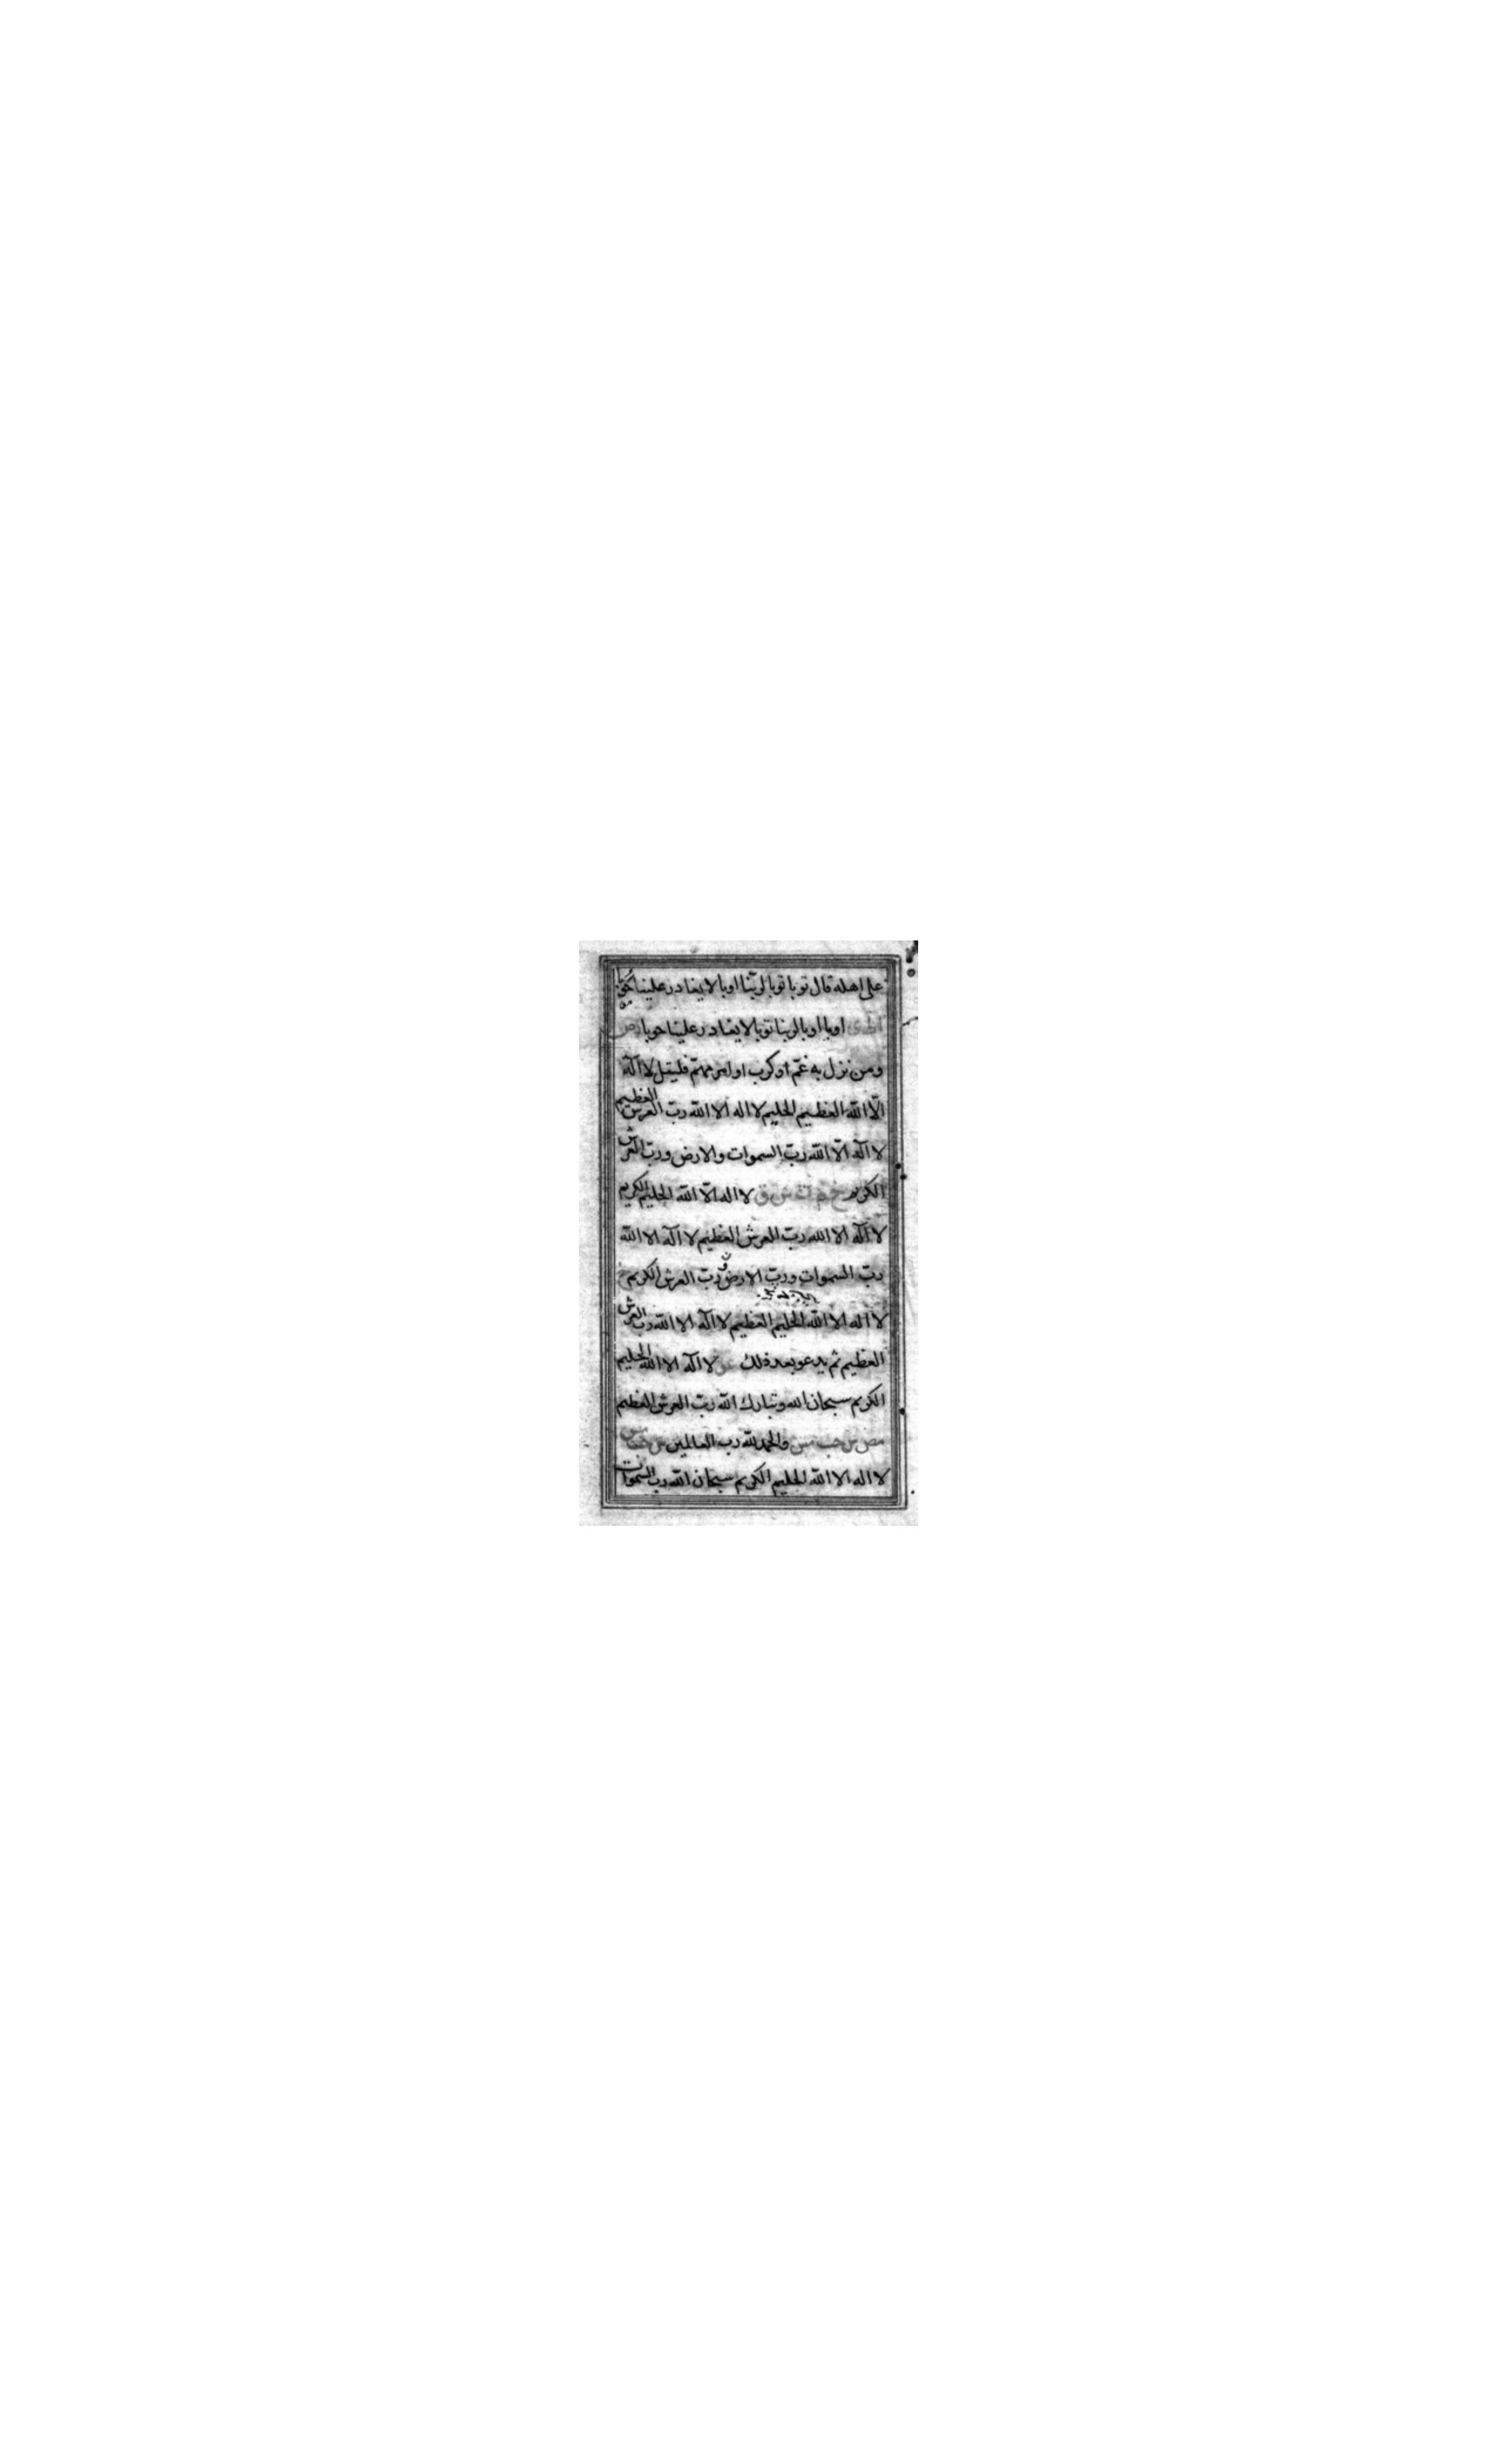 على اهله قال توبا توبا لربّنا اوبا لا يغادر علينا حوبا
اط ى اوبا اوبا لربنا توبا لا يغادر علينا حوبا رص
ومن نزل به غمّ او كرب او امر مهمّ فليقل لا اله
الّا الله العظيم الحليم لا اله الا الله ربّ العرش العظيم
لا اله الّا الله ربّ السموات والارض وربّ العرش
الكريم خ م ت س ق لا اله الّا الله الحليم الكريم
لا اله الا الله ربّ العرش العظيم لا اله الا الله
ربّ السموات وربّ الارض وربّ العرش الكريم خ
لا اله الا الله الحليم العظيم لا اله الا الله ربّ العرش
العظيم ثم يدعو بعد ذلك عو لا اله الا الله الحليم
الكريم سبحان الله وتبارك الله ربّ العرش العظيم
مص س حب مس والحمد لله رب العالمين
لا اله الا الله الحليم الكريم سبحان الله رب السموات